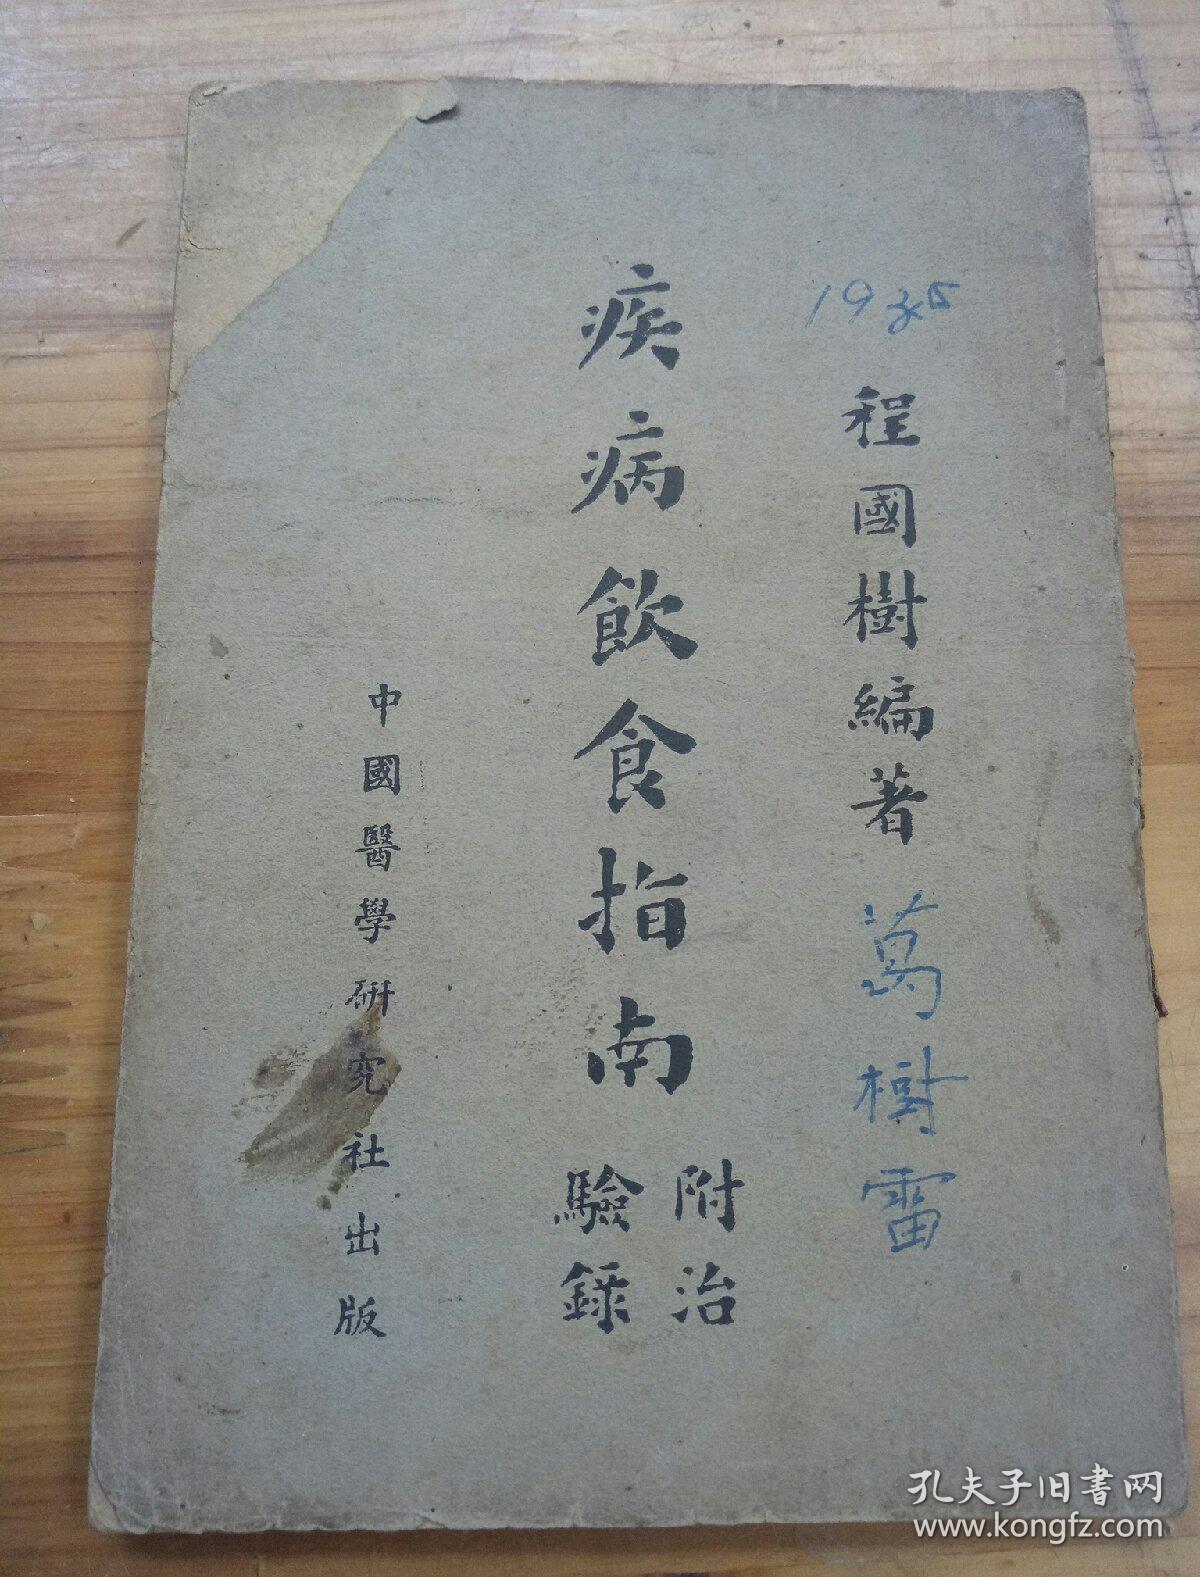 程國樹編著
萬樹雷
疾病飲食指南
附治
驗錄
中國醫學研究社出版
孔夫子旧书网
www.kongfz.com